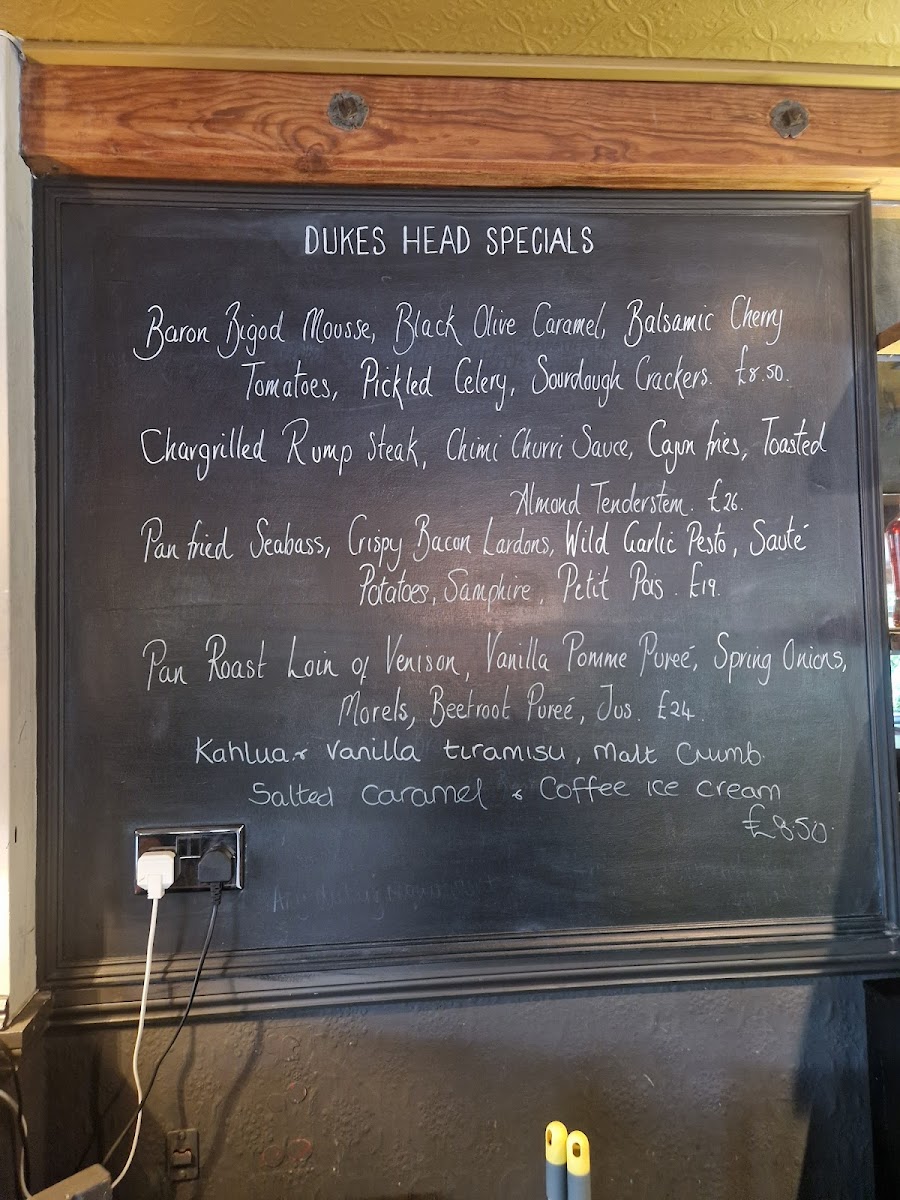 DUKES HEAD SPECIALS
Baron Bigod Mousse, Black Olive Caramel, Balsamic Cherry
Tomatoes, Pickled Celery, Sourdough Crackers. £8.50.
Chargrilled Rump Steak, Chimi Churri Sauce, Cajun fries, Toasted
Almond Tenderstem. £26.
Pan fried Seabass, Crispy Bacon Lardons, Wild Garlic Pesto, Sauté
Potatoes, Samphire, Petit Pois. £19.
Pan Roast Loin of Venison, Vanilla Pomme Pureé, Spring Onions,
Morels, Beetroot Pureé, Jus. £24.
Kahlua & Vanilla tiramisu, Malt Crumb.
Salted caramel & Coffee ice cream
£8.50.